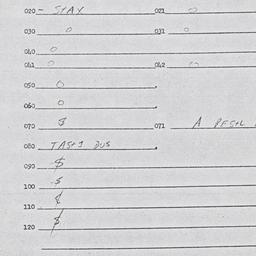 020 - STAX 021 0
030 0 031 0
040 0
041 0 042 0
050 0
060 0
070 $ 071 A
080 BUS
090 $
100 $
110 $
120 $